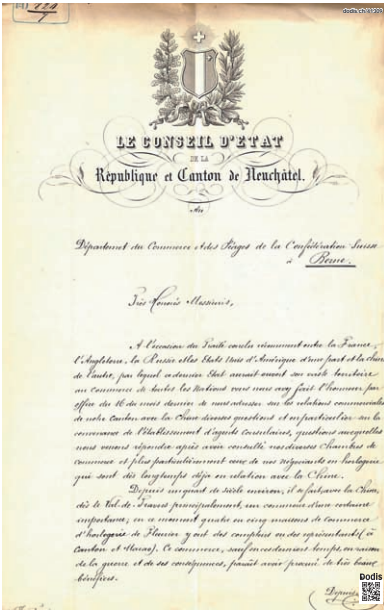 dodis.ch/41309
LE CONSEIL D'ETAT
DE LA
République et Canton de Neuchâtel.
Au
Département du Commerce et des Péages de la Confédération Suisse
à Berne.
Très Honorés Messieurs,
A l'occasion du Traité conclu récemment entre la France,
l'Angleterre, la Russie et les Etats Unis d'Amérique d'une part et la Chine
de l'autre, par lequel ce dernier Etat aurait ouvert son vaste territoire
au commerce de toutes les Nations vous nous avez fait l'honneur par
office du 16 du mois dernier de nous adresser sur les relations commerciales
de notre Canton avec la Chine diverses questions et en particulier sur la
convenance de l'établissement d'agents consulaires, questions auxquelles
nous venons répondre après avoir consulté nos diverses chambres de
commerce et plus particulièrement ceux de nos négociants en horlogerie
qui sont dès longtemps déjà en relation avec la Chine.
Depuis un quart de siècle environ, il se fait avec la Chine,
dès le Val-de-Travers principalement, un commerce d'une certaine
importance, en ce moment quatre ou cinq maisons de commerce
d'horlogerie de Fleurier y ont des comptoirs ou des représentants (à
Canton et Macao). Ce commerce, sauf en ces derniers temps en raison
de la guerre et de ses conséquences, paraît avoir procuré de très beaux
bénéfices.
Depuis
Dodis